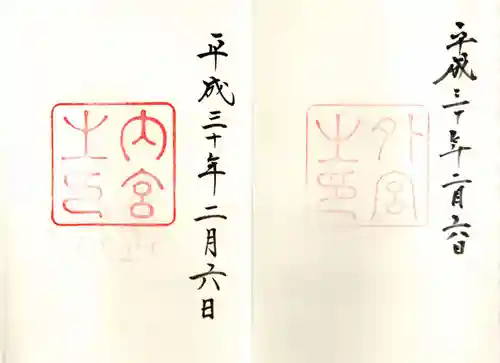 平成三十年二月六日
内宮
之印
平成三十年二月六日
外宮
之印